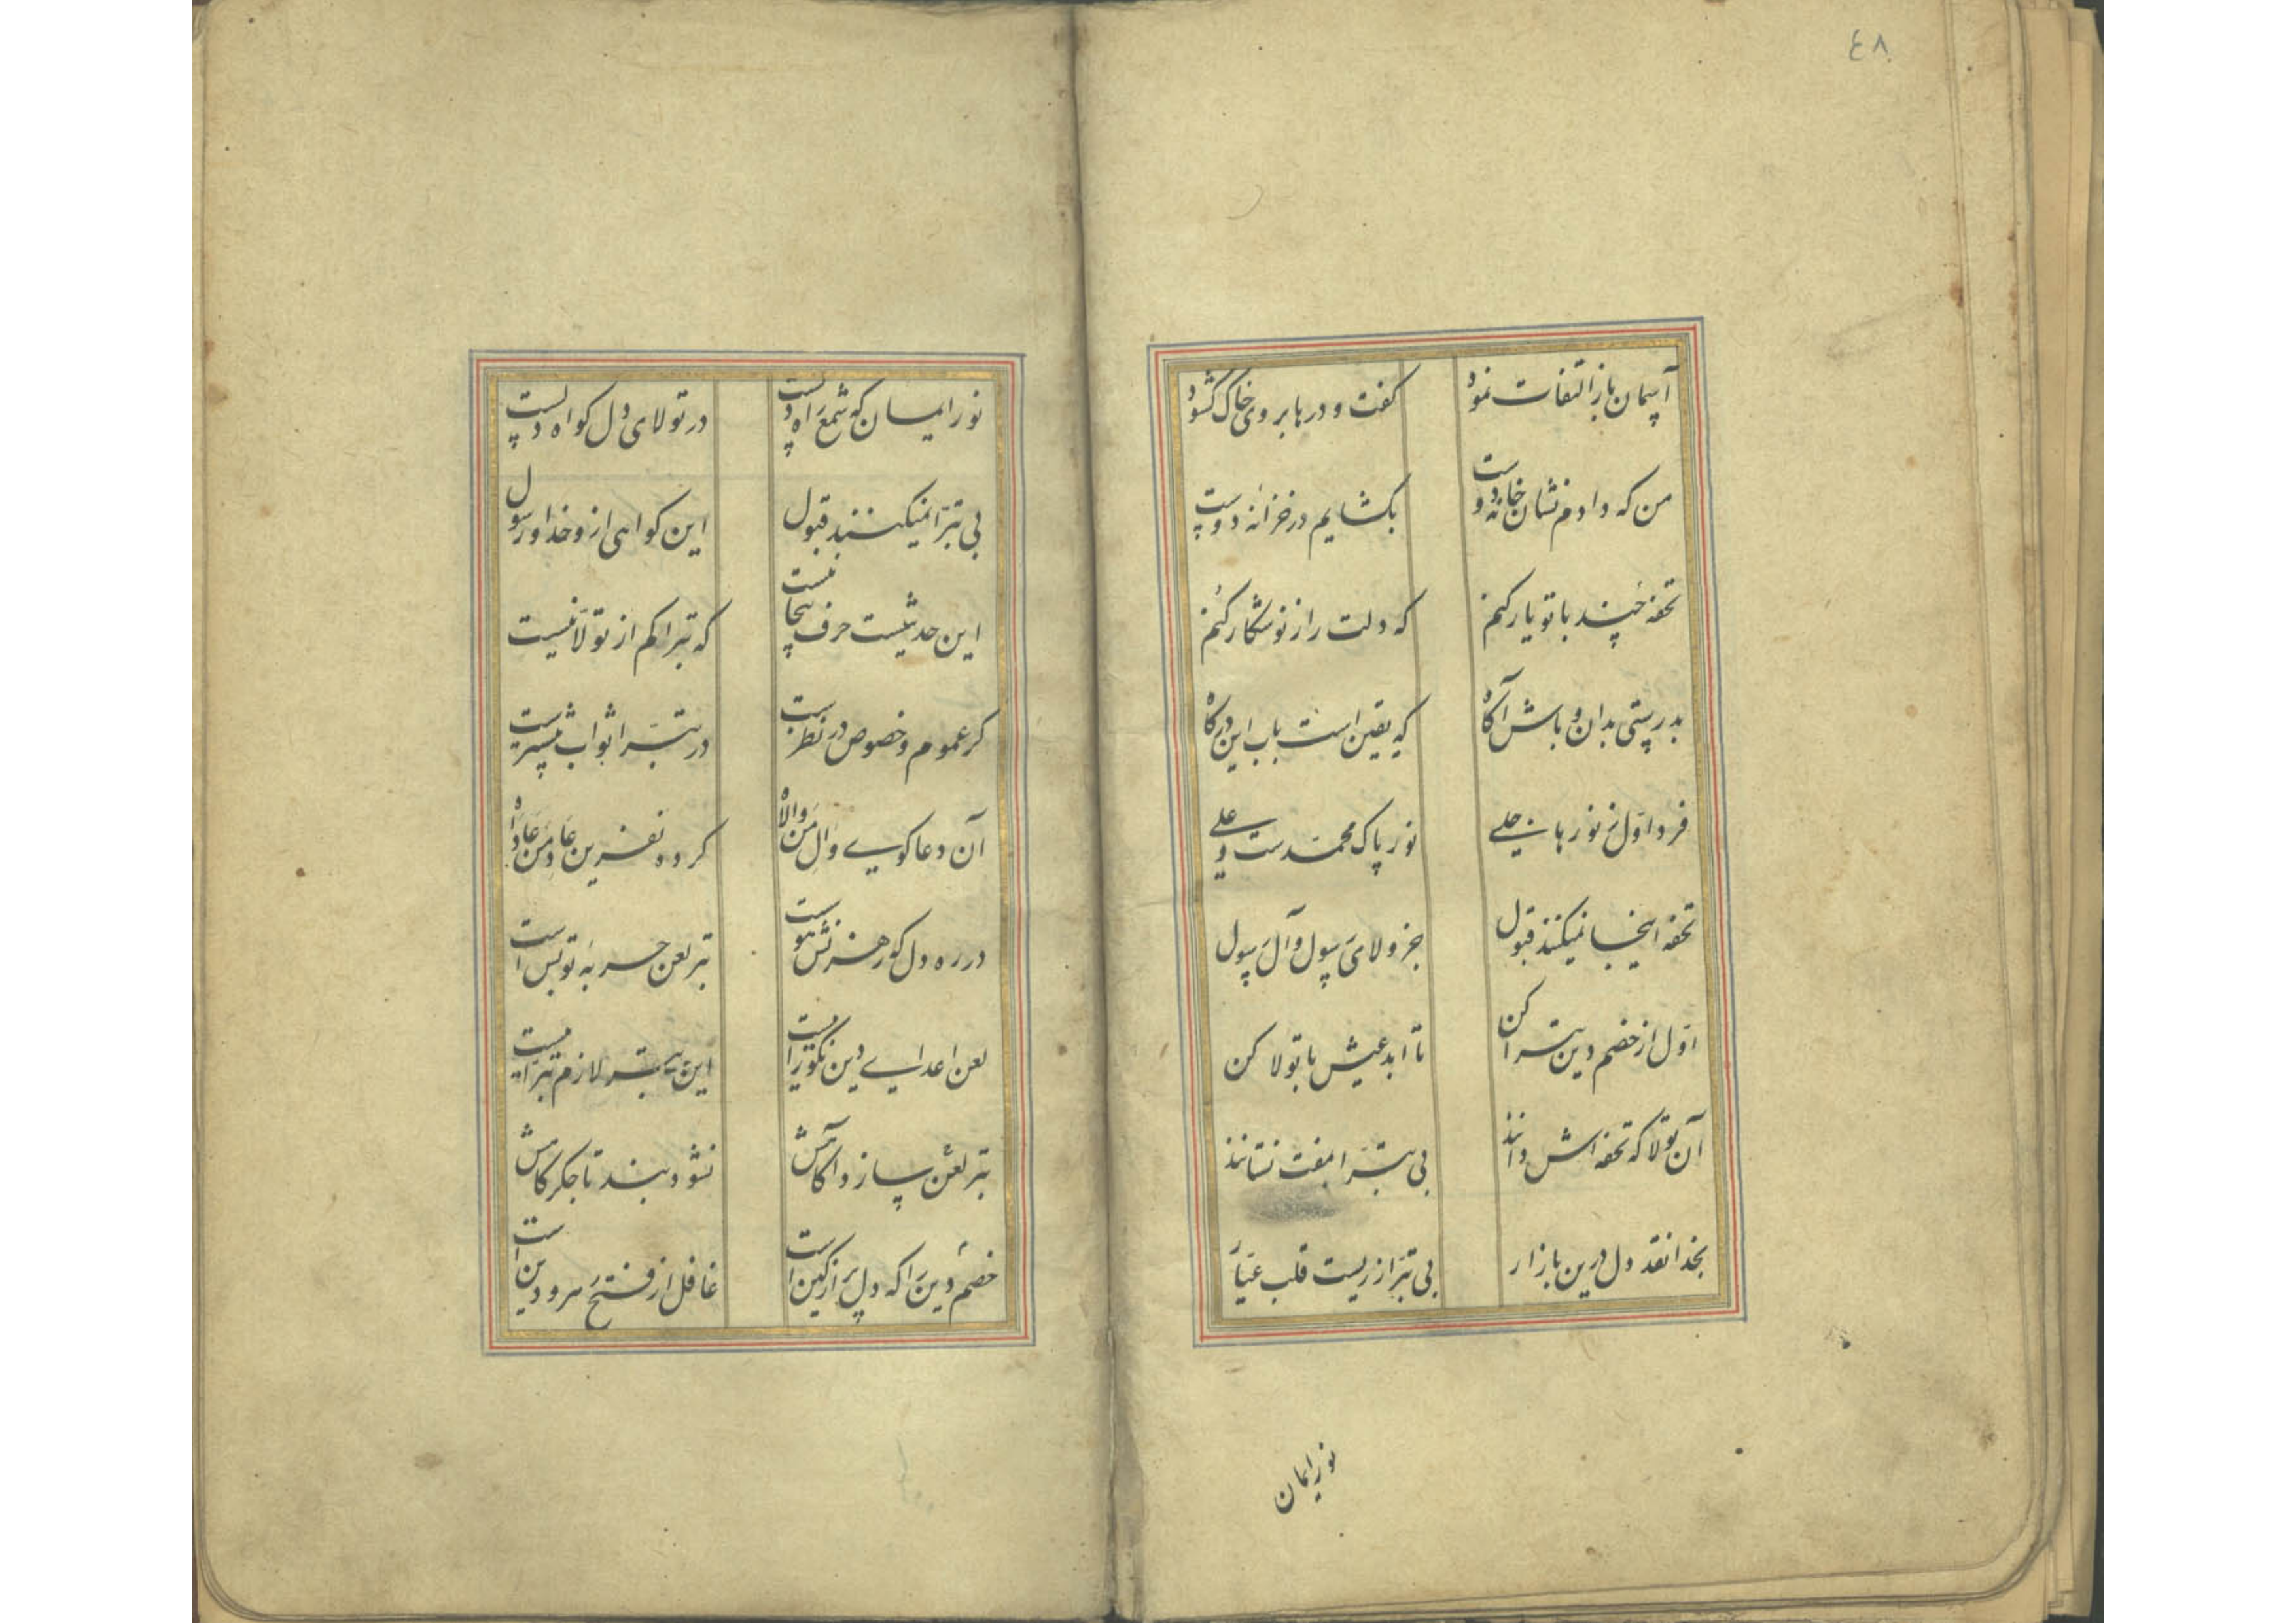 ٤٨
آسمان باز التفات نمود گفت و درها بروی خاک گشود
من که دادم نشان خانه دوست بکشایم در خزانه دوست
تحفه چند با تو یار کنم که دلت را ز نو شکار کنم
بدرستی بدان و باش آگاه که یقین است باب این درگاه
فرد اول ز نورهای جلی نور پاک محمدست و علی
تحفه اینجا نمیکنند قبول جز ولای رسول و آل رسول
اول از خصم دین تبرا کن تا ابد عیش با تولا کن
آن تولا که تحفه اش دانند بی تبرا بمفت نستانند
بخدا نقد دل درین بازار بی تبرا زریست قلب عیار
نور ایمان
نور ایمان که شمع راه دلست در تولای دل کواه دلست
بی تبرا نمیکنند قبول این کواهی ازو خدا و رسول
این حدیثیست حرف بیجا نیست که تبرا کم از تولا نیست
کر عموم و خصوص در نظرست در تبرا ثواب بیشترست
آن دعا کوی وال من والاه کرده نفرین عاد من عاداه
در ره دل که رهزنش هوست تیر لعن حربه تو بس است
لعن اعدای دین نکوتر است این تبرا
تیر لعن ساز و آکاهش نشود بند تا جکرکاهش
خصم دین را که دل پر از کین است غافل از فتح سرور دین است